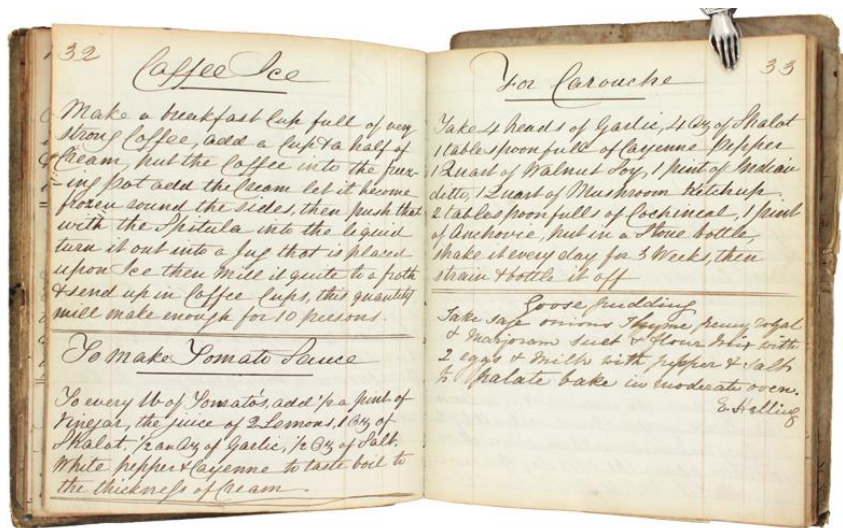 32
Coffee Ice
Make a breakfast Cup full of very
strong Coffee, add a Cup & a half of
Cream, put the Coffee into the freez-
-ing pot add the Cream let it become
frozen round the sides, then push that
with the Spitula into the liquid
turn it out into a Jug that is placed
upon Ice then Mill it quite to a froth
& send up in Coffee Cups, this quantity
will make enough for 10 persons.
To make Tomato Sauce
To every lb of Tomato's, add 1/2 a pint of
Vinegar, the juice of 2 Lemons, 1 Oz of
Shalot, 1/2 an Oz of Garlic, 1/2 Oz of Salt,
White pepper & Cayenne to taste boil to
the thickness of Cream.
33
For Carouche
Take 4 heads of Garlic, 4 Oz of Shalot
1 table spoonfull of Cayenne Pepper
1 Quart of Walnut Soy, 1 pint of Indian
ditto, 1 Quart of Mushroom Ketchup
2 tablespoonfulls of Cochineal, 1 pint
of Anchovie, put in a Stone bottle,
shake it every day for 3 Weeks, then
strain & bottle it off
Goose pudding
Take sage onions Thyme penny royal
& Marjoram suet & flour Mix with
2 eggs & Milk with pepper & salt
to palate bake in moderate oven.
E. Halling